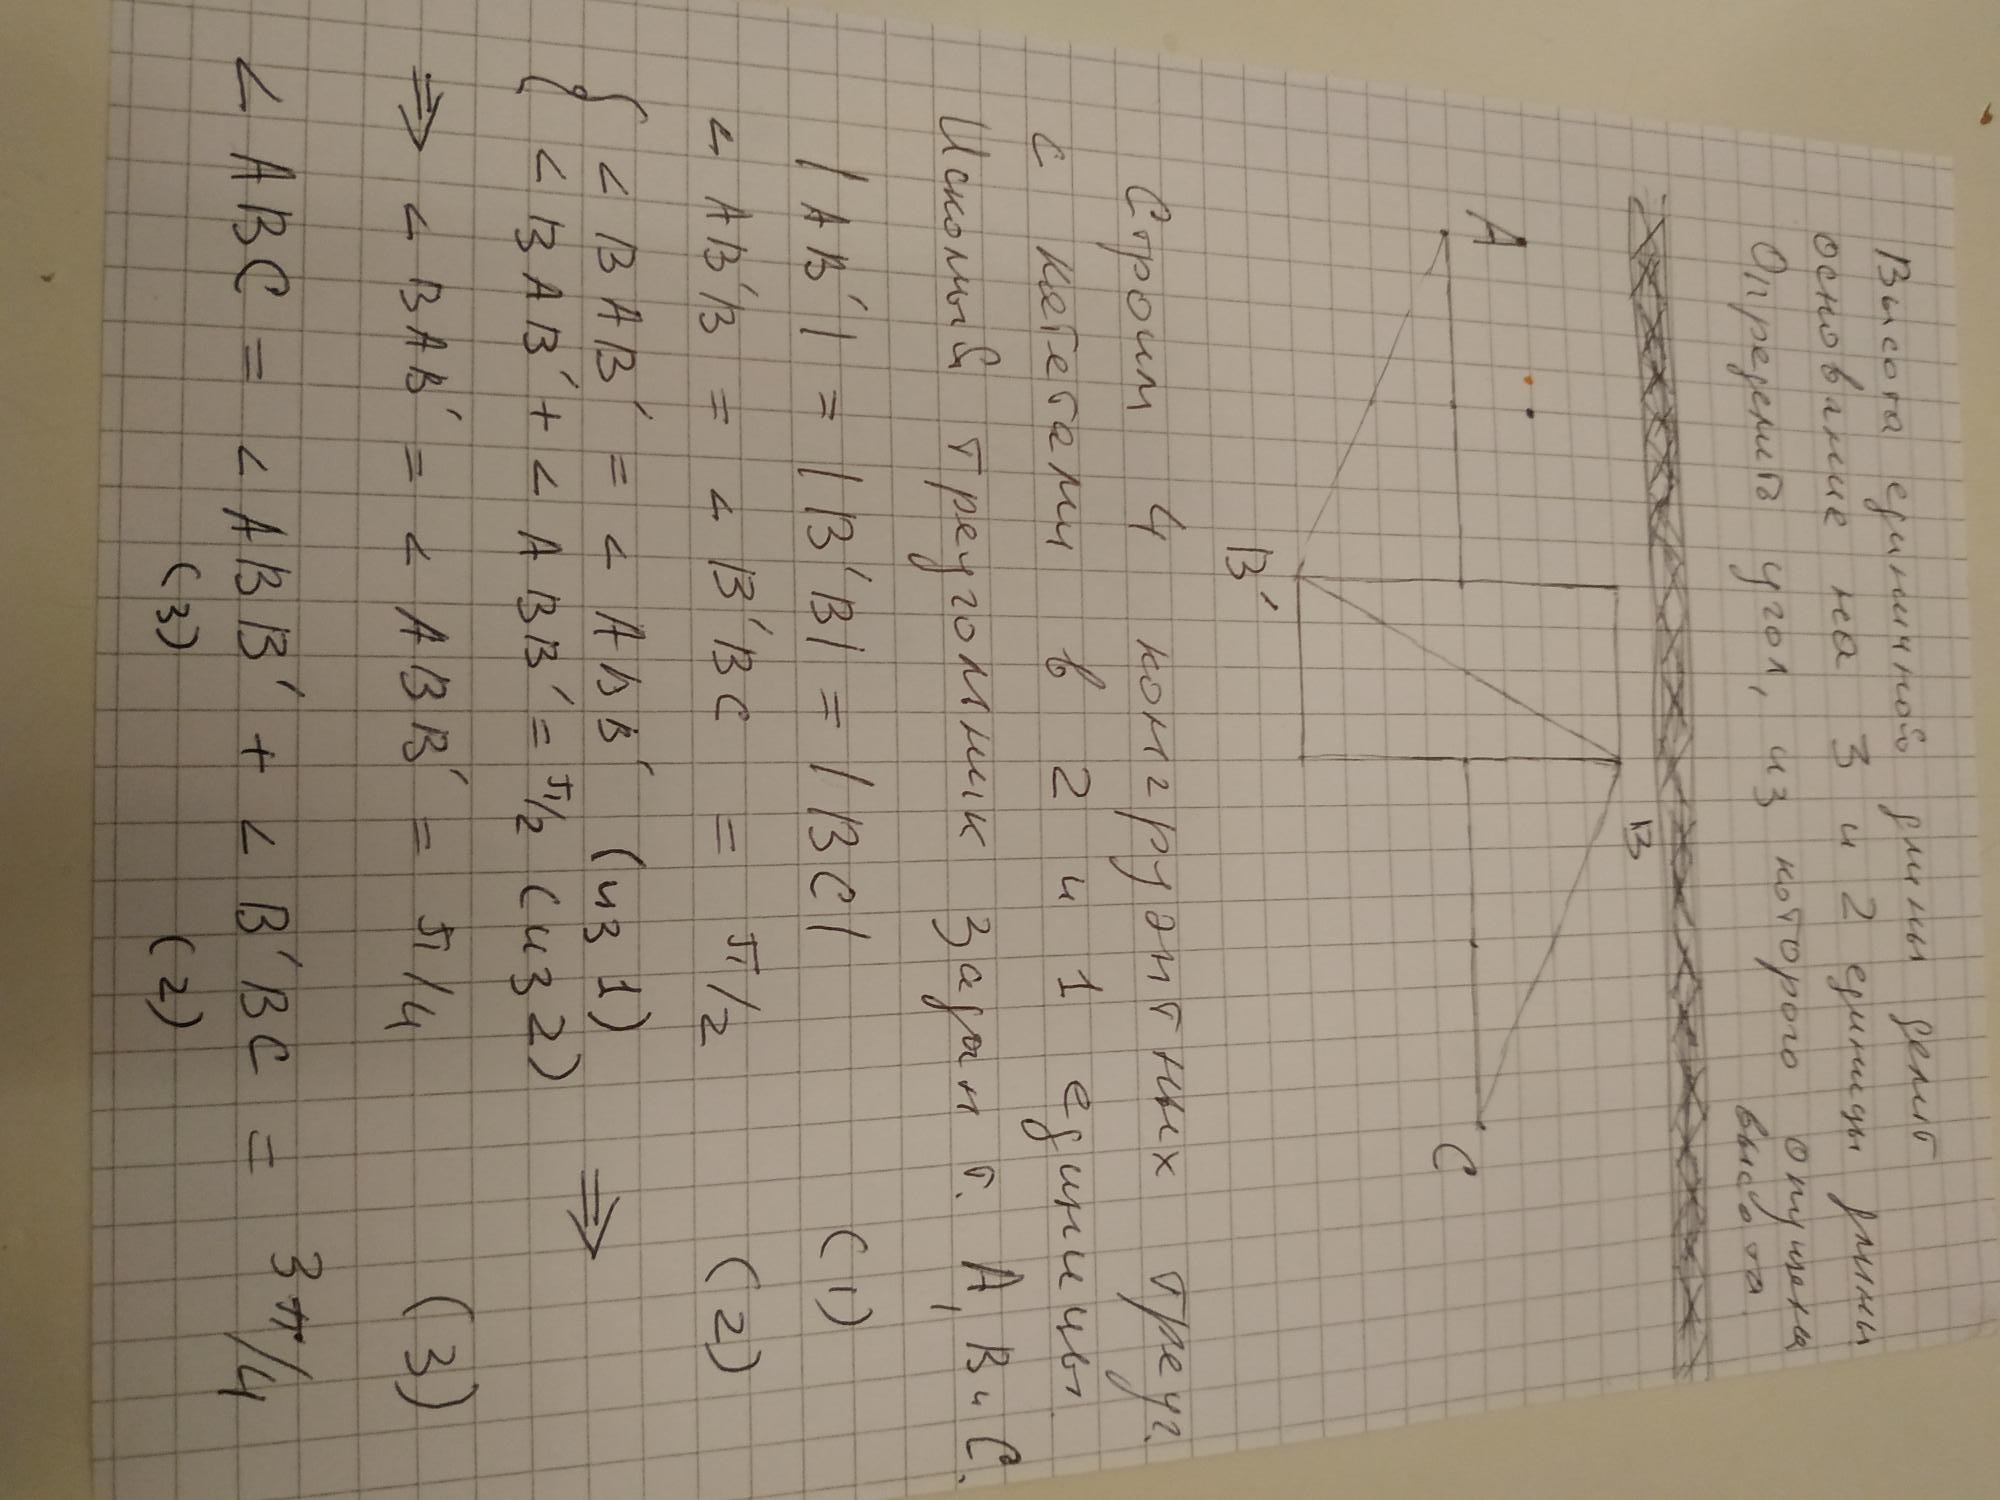 Высота единичной длины делит
основание на 3 и 2 единицы длины
Определить угол, из которого опущена
высота
A
B
B′
C
Строим 4 конгруэнтных треуг.
с катетами в 2 и 1 единицы.
Искомый треугольник задан т. A, B и C.
|AB′| = |B′B| = |BC| (1)
∠AB′B = ∠B′BC = π/2 (2)
{ ∠BAB′ = ∠ABB′ (из 1)
∠BAB′ + ∠ABB′ = π/2 (из 2) ⇒
⇒ ∠BAB′ = ∠ABB′ = π/4 (3)
∠ABC = ∠ABB′ + ∠B′BC = 3π/4
(3) (2)